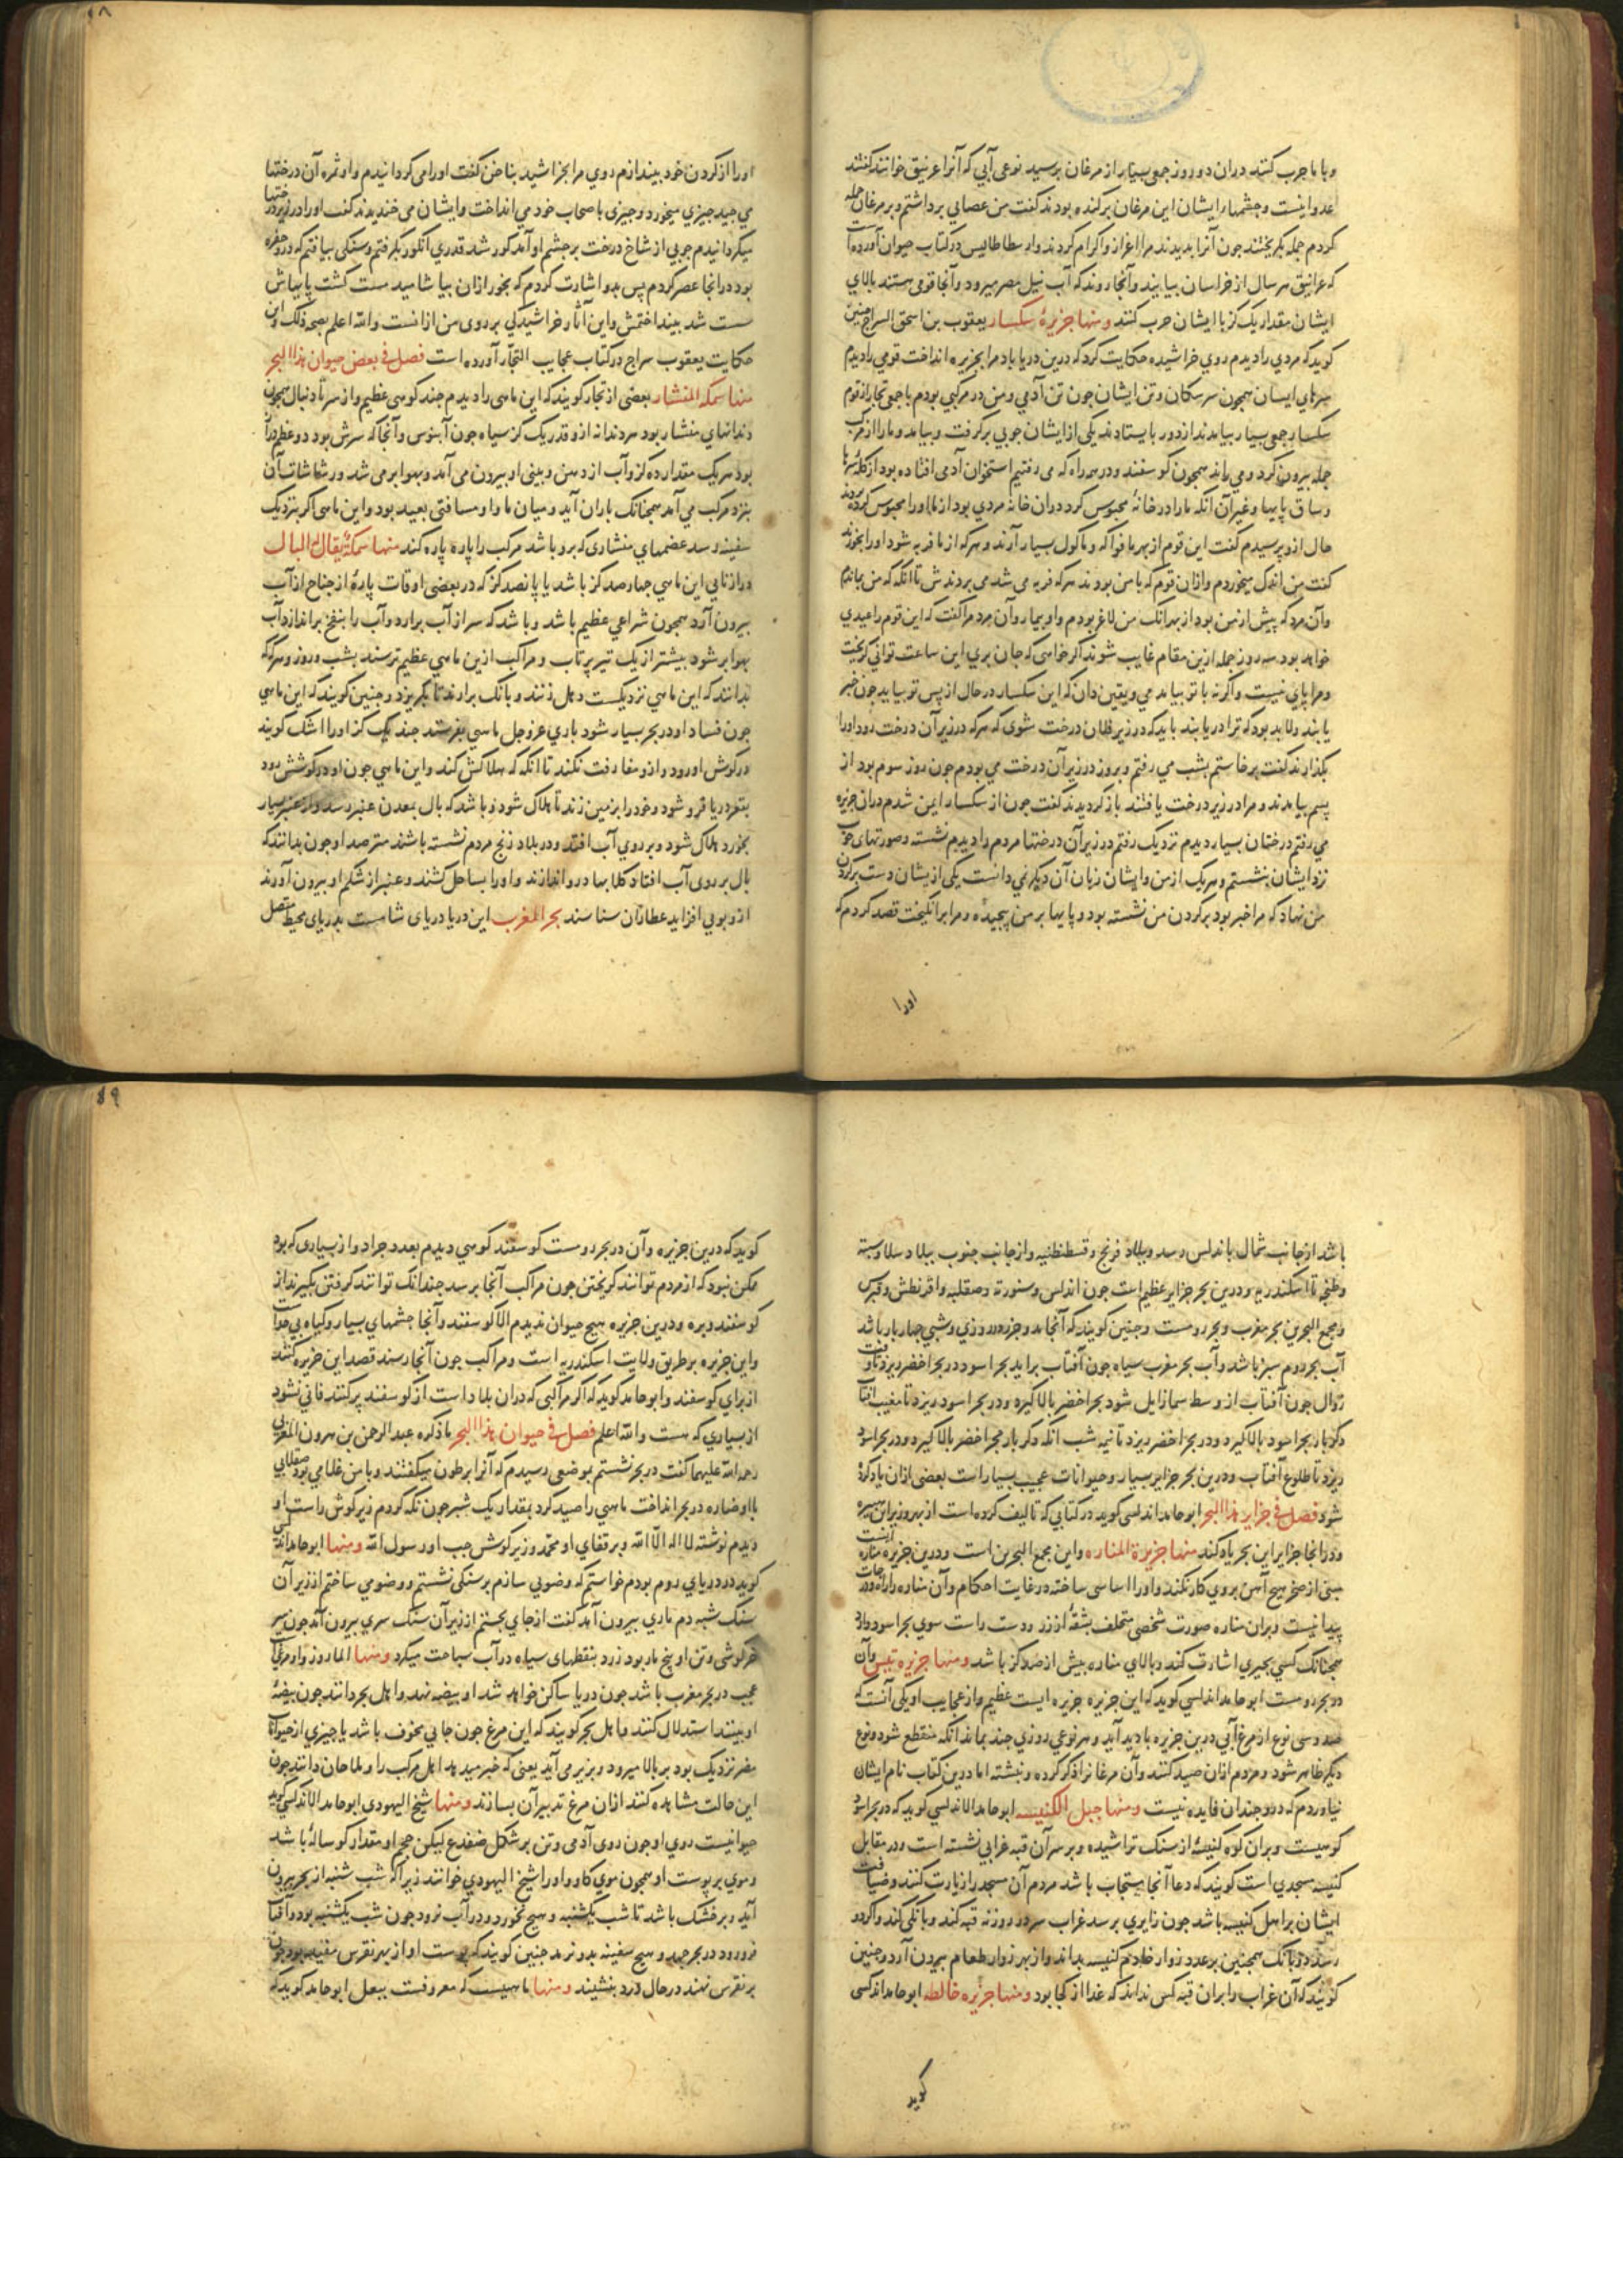 و با ما حرب کنند دران دو روز جمعی بسیار از مرغان برسید نوعی آبی که آنرا غرنیق خوانند کفتند
عدو اینست و چشمهاء ایشان این مرغان برکنده بودند کفت من عصایی برداشتم و بر مرغان حمله
کردم جمله بکریختند جون آنرا بدیدند مرا اعزاز و اکرام کردند و ارسطاطالیس در کتاب حیوان آورده است
که غرانیق هر سال از خراسان بیایند و آنجا روند که آب نیل مصر میرود و آنجا قومی هستند بالای
ایشان مقدار یک کز با ایشان حرب کنند ومنها جزیرهٔ سکسار یعقوب بن اسحق السراج چنین
کوید که مردی را دیدم روی خراشیده حکایت کرد که درین دریا باد مرا بجزیره انداخت قومی را دیدم
سرهای ایشان همچون سر سکان و تن ایشان جون تن آدمی و من در مرکبی بودم با جمعی تجار از قوم
سکسار جمعی بسیار بیامدند از دور بایستادند یکی از ایشان جوبی برکرفت و بیامد و ما را از مرکب
جمله بیرون کرد و می راند همچون کوسفند و در همه راه که می رفتیم استخوان آدمی افتاده بود از کلهٔ سر یا
و ساق پایها و غیر آن انکه ما را در خانهٔ محبوس کرد دران خانه مردی بود از ما او را محبوس کرده بودند
حال ازو پرسیدم کفت این قوم از بهر ما فواکه و ماکول بسیار آرند و هرکه از ما فربه شود او را بخورند
کفت من اندک میخوردم و ازان قوم که با من بودند هرکه فربه می شد می بردندش تا انکه که من بماندم
وآن مرد که پیش از من بود از بهر انک من لاغر بودم و او بیمار وآن مرد مرا کفت که این قوم را عیدی
خواهد بود سه روز جمله ازین مقام غایب شوند اکر خواهی که جان بری این ساعت توانی کریخت
ومرا پای نیست و اکرنه با تو بیامدمی و یقین دان که این سکسار در حال از پس تو بیاید جون خبر
یابند ولابد بود که ترا دریابند باید که در زیر فلان درخت شوی که هرکه در زیر آن درخت رود او را
بکذارند کفت برخاستم بشب می رفتم و بروز در زیر آن درخت می بودم جون روز سوم بود از
پسم بیامدند و مرا در زیر درخت یافتند بازکردیدند کفت جون از سکسار ایمن شدم دران جزیره
می رفتم درختان بسیار دیدم نزدیک رفتم در زیر آن درختها مردم را دیدم نشسته و صورتهای خوب
نزد ایشان بنشستم و هریک از من و ایشان زبان آن دیکر نمی دانست یکی ازیشان دست بر کردن
من نهاد که مرا خبر بود بر کردن من نشسته بود و پایها بر من پیچیده و مرا برانکیخت قصد کردم که
اورا
او را از کردن خود بیندازم روی مرا بخراشید بناخن کفت او را می کردانیدم واو ثمره آن درختها
می جید جیزی میخورد و جیزی باصحاب خود می انداخت و ایشان می خندیدند کفت او را در زیر درختها
میکردانیدم جوبی از شاخ درخت بر جشم او آمد کور شد قدری انکور بکرفتم و سنکی بیافتم که درو حفره
بود در انجا عصر کردم پس بدو اشارت کردم که بخور ازان بیاشامید مست کشت پایهاش
سست شد بینداختمش و این آثار خراشیدکی بر روی من ازانست والله اعلم بصحة ذلک و این
حکایت یعقوب سراج در کتاب عجایب التجار آورده است فصل فی بعض حیوان هذا البحر
منها سمکة المنشار بعضی از تجار کویند که این ماهی را دیدم جند کوهی عظیم و از سر تا دنبال همچون
دندانهای منشار بود هر دندانه ازو قدر یک کز سیاه جون آبنوس و آنجا که سرش بود دو عظم دراز
بود هریک مقدار ده کز و آب از دهن و بینی او بیرون می آمد و بهوا بر می شد و رشاشات آن
بنزد مرکب می آمد همچنانک باران آید و میان ما و او مسافتی بعید بود و این ماهی اکر بنزدیک
سفینه رسد عضمهای منشاری که برو باشد مرکب را پاره پاره کند منها سمکة یقال له البال
درازنایی این ماهی چهارصد کز باشد یا پانصد کز که در بعضی اوقات پارهٔ از جناح از آب
بیرون آرد همچون شراعی عظیم باشد و باشد که سر از آب برآرد و آب را بنفخ براندازد آب
بهوا بر شود بیشتر از یک تیر پرتاب و مراکب ازین ماهی عظیم ترسند بشب و روز و هرکه که
بدانند که این ماهی نزدیکست دهل زنند و بانک برآرند تا بکریزد و جنین کویند که این ماهی
جون فساد او در بحر بسیار شود باری عز وجل ماهی بفرستد جند یک کز او را اشک کویند
در کوش او رود و ازو مفارقت نکند تا انکه که هلاکش کند و این ماهی جون او در کوشش رود
بقعر دریا فرو شود و خود را بزمین زند تا هلاک شود و باشد که بال بمعدن عنبر رسد و از عنبر بسیار
بخورد هلاک شود و بر روی آب افتد و در بلاد زنج مردم نشسته باشند مترصد او جون بدانند که
بال بر روی آب افتاد کلابها درو اندازند و او را بساحل کشند و عنبر از شکم او بیرون آورند
ازو بویی افزاید عطاران شناسند بحر المغرب این دریا دریای شامست بدریای محیط متصل
باشد از جانب شمال باندلس رسد و ببلاد فرنج و قسطنطنیه و از جانب جنوب ببلاد سلا و سبته
وطنجه تا اسکندریه و درین بحر جزایر عظیم است جون اندلس و میورقه و صقلیه و اقریطش و قبرس
و مجمع البحرین بحر مغرب و بحر رومست و جنین کویند که آنجا مد و جزر در روزی و شبی جهار بار باشد
آب بحر روم سبز باشد و آب بحر مغرب سیاه جون آفتاب برآید بحر اسود در بحر اخضر ریزد تا وقت
زوال جون آفتاب از وسط سما زایل شود بحر اخضر بالا کیرد و در بحر اسود ریزد تا مغیب آفتاب
دکر بار بحر اسود بالا کیرد و در بحر اخضر ریزد تا نیمه شب انکه دکر بار بحر اخضر بالا کیرد و در بحر اسود
ریزد تا طلوع آفتاب و درین بحر جزایر بسیار و حیوانات عجیب بسیار است بعضی ازان یاد کرده
شود فصل فی جزایر هذا البحر ابو حامد اندلسی کوید در کتابی که تالیف کرده است از بهر وزیر ابن هبیره
و در انجا جزایر این بحر یاد کند منها جزیرة المناره و این مجمع البحرین است و درین جزیره مناره ایست
مبنی از صخر هیچ آهن بروی کار نکند و او را اساسی ساخته در غایت احکام وآن مناره را راه و درجات
پیدا نیست و بران مناره صورت شخصی متحلف بشقهٔ از زر و دست راست سوی بحر اسود دراز
همچنانک کسی بجیزی اشارت کند و بالای مناره بیش از صد کز باشد ومنها جزیره تنیس وآن
در بحر رومست ابو حامد اندلسی کوید که این جزیره جزیره ایست عظیم و از عجایب او یکی آنست که
صد و سی نوع از مرغ آبی درین جزیره بادید آید و هر نوعی روزی چند بماند انکه منقطع شود و نوع
دیکر ظاهر شود و مردم ازان صید کنند وآن مرغانرا ذکر کرده و بنشته اما درین کتاب نام ایشان
نیاوردم که درو چندان فایده نیست ومنها جبل الکنیسه ابو حامد الاندلسی کوید که در بحر اسود
کوهیست و بران کوه کنیسهٔ از سنک تراشیده و بر سر آن قبه غرابی نشسته است و در مقابل
کنیسه مسجدی است کویند که دعا آنجا مستجاب باشد مردم آن مسجد را زیارت کنند و ضیافت
ایشان بر اهل کنیسه باشد جون زایری برسد غراب سر در روزنه قبه کند و بانکی کند و اکر دو
رسند دو بانک همچنین بر عدد زوار خادم کنیسه بداند و از بهر زوار طعام بیرون آرد و جنین
کویند که آن غراب را بران قبه کس نداند که غذا از کجا بود ومنها جزیره خالطه ابو حامد اندلسی
کوید
کوید که درین جزیره وآن در بحر رومست کوسفند کوهی دیدم بعدد جراد و از بسیاری که بود
ممکن نبود که از مردم توانند کریختن جون مراکب آنجا برسد جندانک توانند کرفتن بکیرند از
کوسفند و بره و درین جزیره هیچ حیوان ندیدم الا کوسفند و آنجا جشمهای بسیار و کیاه بی حد است
واین جزیره بر طریق ولایت اسکندریه است و مراکب جون آنجا رسند قصد این جزیره کنند
از برای کوسفند و ابو حامد کوید که اکر مراکبی که دران بلاد است از کوسفند پر کنند فانی نشود
از بسیاری که هست والله اعلم فصل فی حیوان هذا البحر ما ذکره عبد الرحمن بن هرون المغربی
رحمة الله علیهما کفت در بحر نشستم بموضعی رسیدم که آنرا برطون میکفتند و با من غلامی بود صقلابی
با او صناره در بحر انداخت ماهی را صید کرد بمقدار یک شبر جون نکه کردم زیر کوش راست او
دیدم نوشته لا اله الا الله و بر قفای او محمد و زیر کوش جب او رسول الله ومنها ابو حامد اندلسی
کوید در دریای روم بودم خواستم که وضویی سازم بر سنکی نشستم و وضو می ساختم از زیر آن
سنک شبه دم ماری بیرون آمد کفت از جای بجستم از زیر آن سنک سری بیرون آمد جون سر
خرکوشی و تن او پنج مار بود زرد بنقطهای سیاه در آب سیاحت میکرد ومنها المازور واو مرغی
عجیب در بحر مغرب باشد جون دریا ساکن خواهد شد او بیضه نهد و اهل بحر دانند جون بیضهٔ
او بینند استدلال کنند و اهل بحر کویند که این مرغ جون جایی مخوف باشد یا جیزی از حیوانات
مضر نزدیک بود بر بالا میرود و بزیر می آید یعنی که خبر میدهد اهل مرکب را و ملاحان دانند جون
این حالت مشاهده کنند ازان مرغ تدبیر آن بسازند ومنها شیخ الیهودی ابو حامد الاندلسی کوید
حیوانیست روی او جون روی آدمی و تن بر شکل ضفدع لیکن حجم او مقدار کوسالهٔ باشد
و موی بر پوست او همچون موی کاو و او را شیخ الیهودی خوانند زیرا که شب شنبه از بحر بیرون
آید و بر خشک باشد تا شب یکشنبه و هیچ نخورد و در آب نرود جون شب یکشنبه بود و آفتاب
فرو رود در بحر جهد و هیچ سفینه بدو نرسد جنین کویند که پوست او از بهر نقرس مفید بود جون
بر نقرس نهند در حال درد بنشیند ومنها ماهییست که معروفست ببغل ابو حامد کوید که